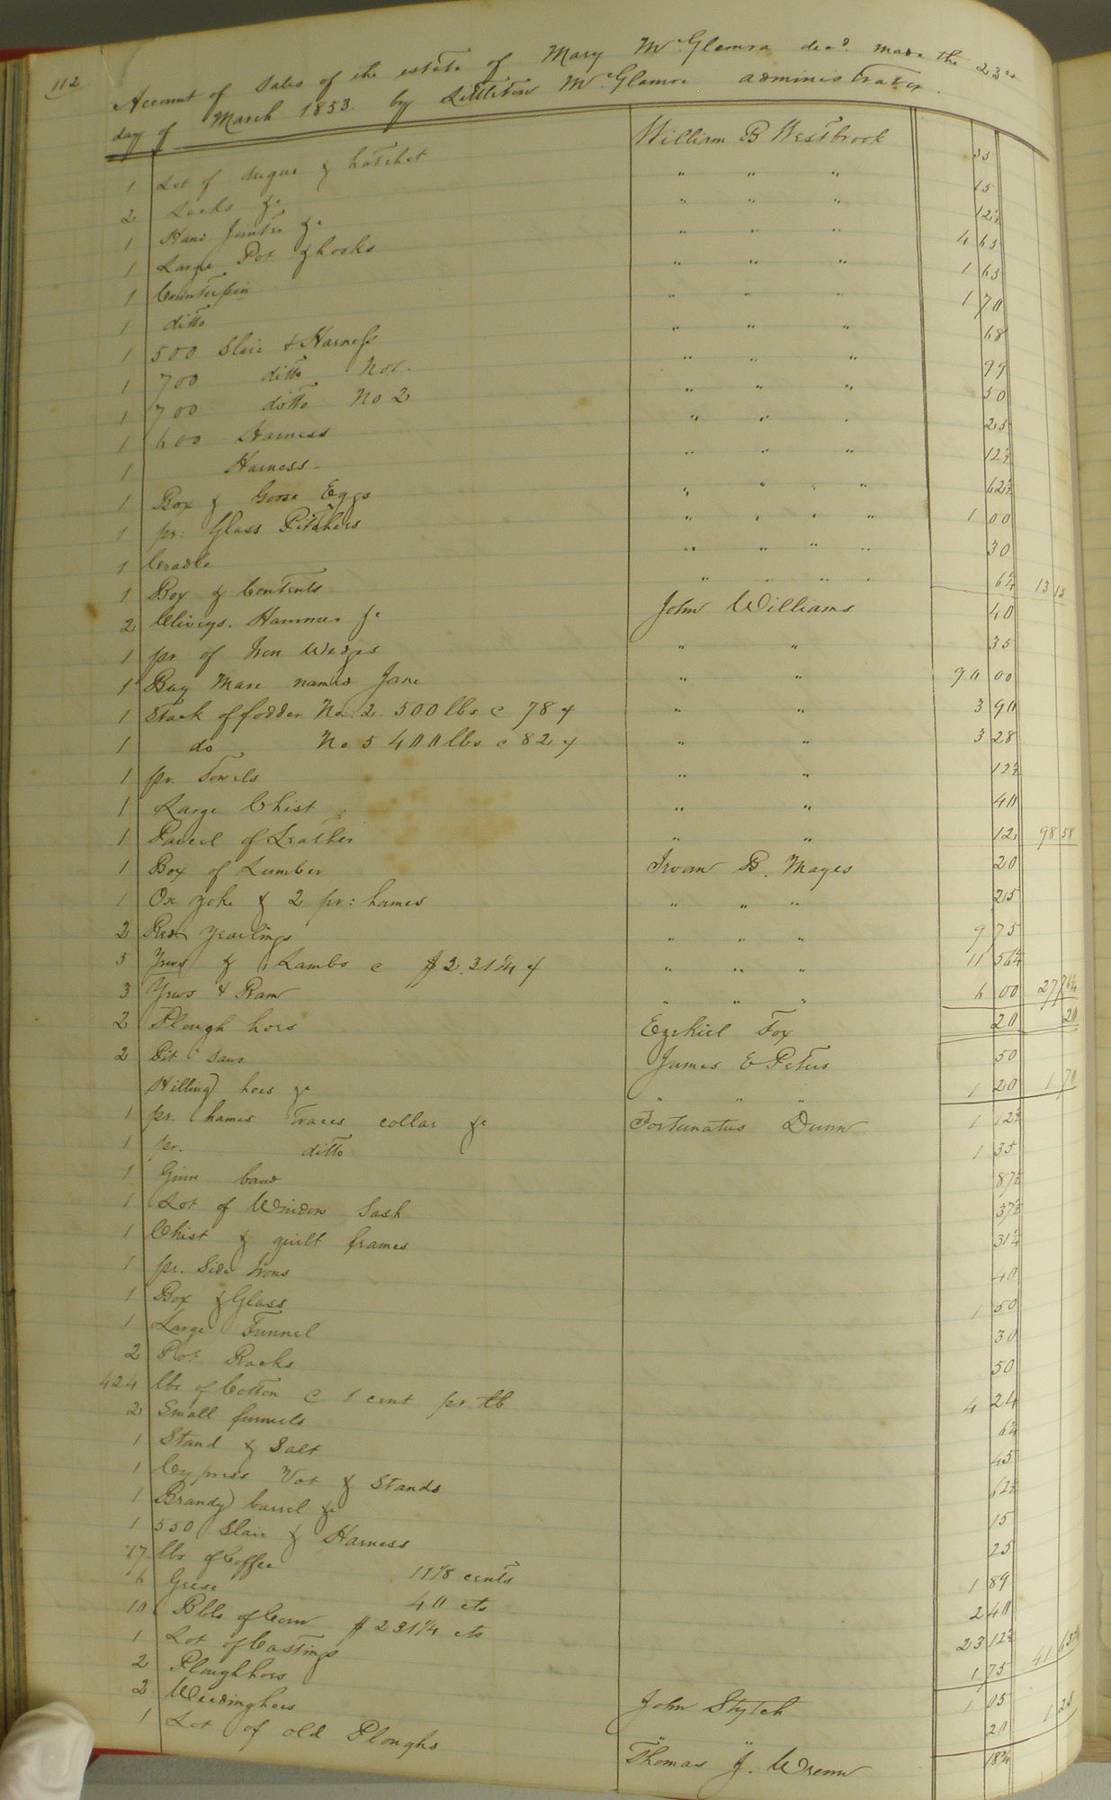 112
Account of Sales of the estate of Mary McGlamra decd. made the 23rd
day of March 1853 by Littleton McGlamre administrator.
1 Lot of Augus & hatchet William B Westbrook 35
2 Locks &c " " " 15
1 Hand Jointer &c " " " 12½
1 Large Pot & hooks " " " 4 65
1 Counterpin " " " 1 65
1 ditto " " " 1 70
1 500 Slaie & Harness " " " 68
1 700 ditto No 1 " " " 99
1 700 ditto No 2 " " " 50
1 600 Harness " " " 25
1 Harness " " " 12½
1 Box & Goose Eggs " " " " 62½
1 pr: Glass Pitchers " " " " 1 00
1 Cradle " " " " 30
1 Box & Contents " " " " 6¼ 13 13
2 Cliveys. Hammer &c John Williams 40
1 pr of Iron Wedges " " 35
1 Bay Mare named Jane " " 90 00
1 Stack of fodder No 2 500 lbs c 78 " " 3 90
1 do No 5 400 lbs c 82 " " 3 28
1 pr. Towels " " 12½
1 Large Chist " " 40
1 Parcel of Leather " " 12½ 98 58
1 Box of Lumber Irvam B. Mayes 20
1 Ox yoke & 2 pr: hames " " " 25
2 Red Yearlings " " " 9 75
5 Yews & Lambs c $2.31¼ " " " 11 56¼
3 Yews & Ram " " " 6 00 27 76¼
2 Plough hoes Ezekiel Fox 20 20
2 Pit Saws James E Peters 50
Hilling hoes &c " " " 1 20 1 70
1 pr. hames Traces collar &c Fortunatus Dunn 1 12½
1 pr. ditto 1 35
1 Ginn band 87½
1 Lot of Window Sash 37½
1 Chist & quilt frames 31¼
1 pr. Side Irons 40
1 Box & Glass 1 50
1 Large Funnel 30
2 Pot Racks 50
424 lbs of Cotton c 1 cent pr lb 4 24
2 Small funnels 6¼
1 Stand & Salt 45
1 Cypress Vat & Stands 62½
1 Brandy barrel &c 15
1 550 Slaie & Harness 25
17 lbs of Coffee 11⅛ cents 1 89
6 Geese 40 cts 2 40
10 Bbls of Corn $2 31¼ cts 23 12½
1 Lot of Castings 1 75 41 67¾
2 Ploughhoes John Stytch 1 05
2 Weedinghoes " " 20 1 25
1 Lot of old Ploughs Thomas J. Wrenn 18¾